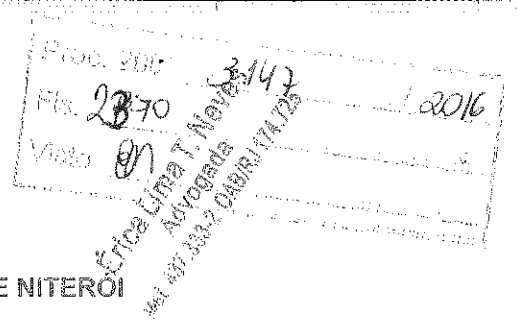 Proc. 200 3147 / 2016
Fls. 2370
Visto
Érica Lima T. Neves
Advogada
Mat. 437.333-2 OAB/RJ 174.725
E NITERÓI